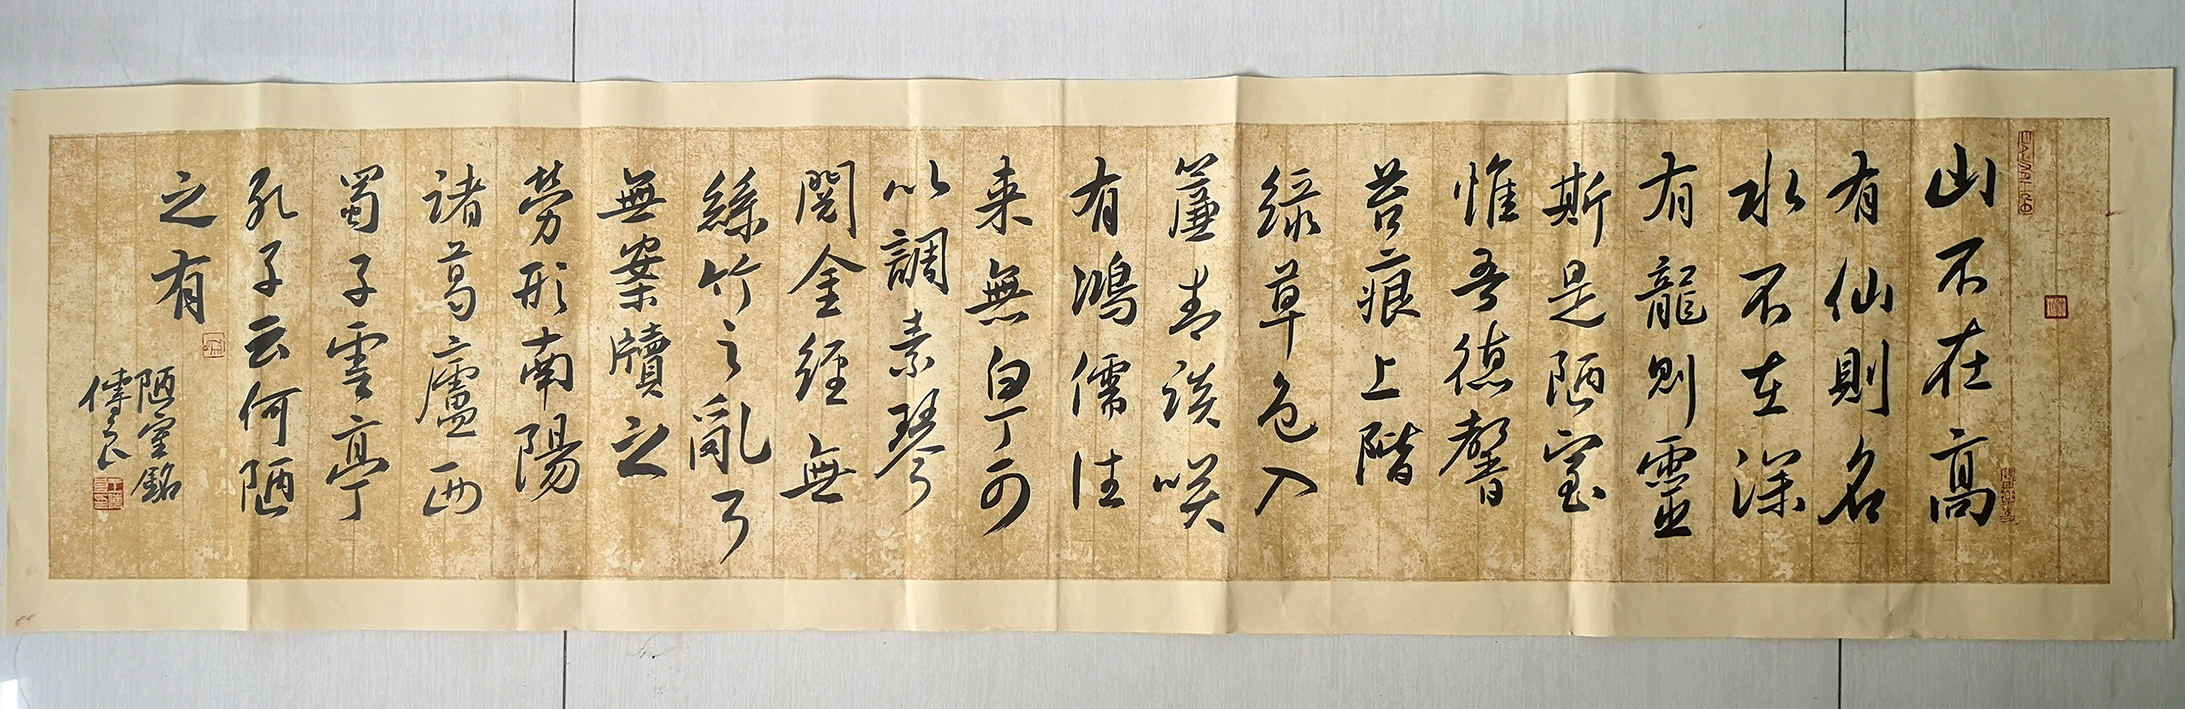 山不在高
有仙則名
水不在深
有龍則靈
斯是陋室
惟吾德馨
苔痕上階
綠草色入
簾青談咲
有鴻儒往
来無白丁可
以調素琴
閱金經無
絲竹之亂耳
無案牘之
勞形南陽
諸葛廬西
蜀子雲亭
孔子云何陋
之有
陋室銘
傳良